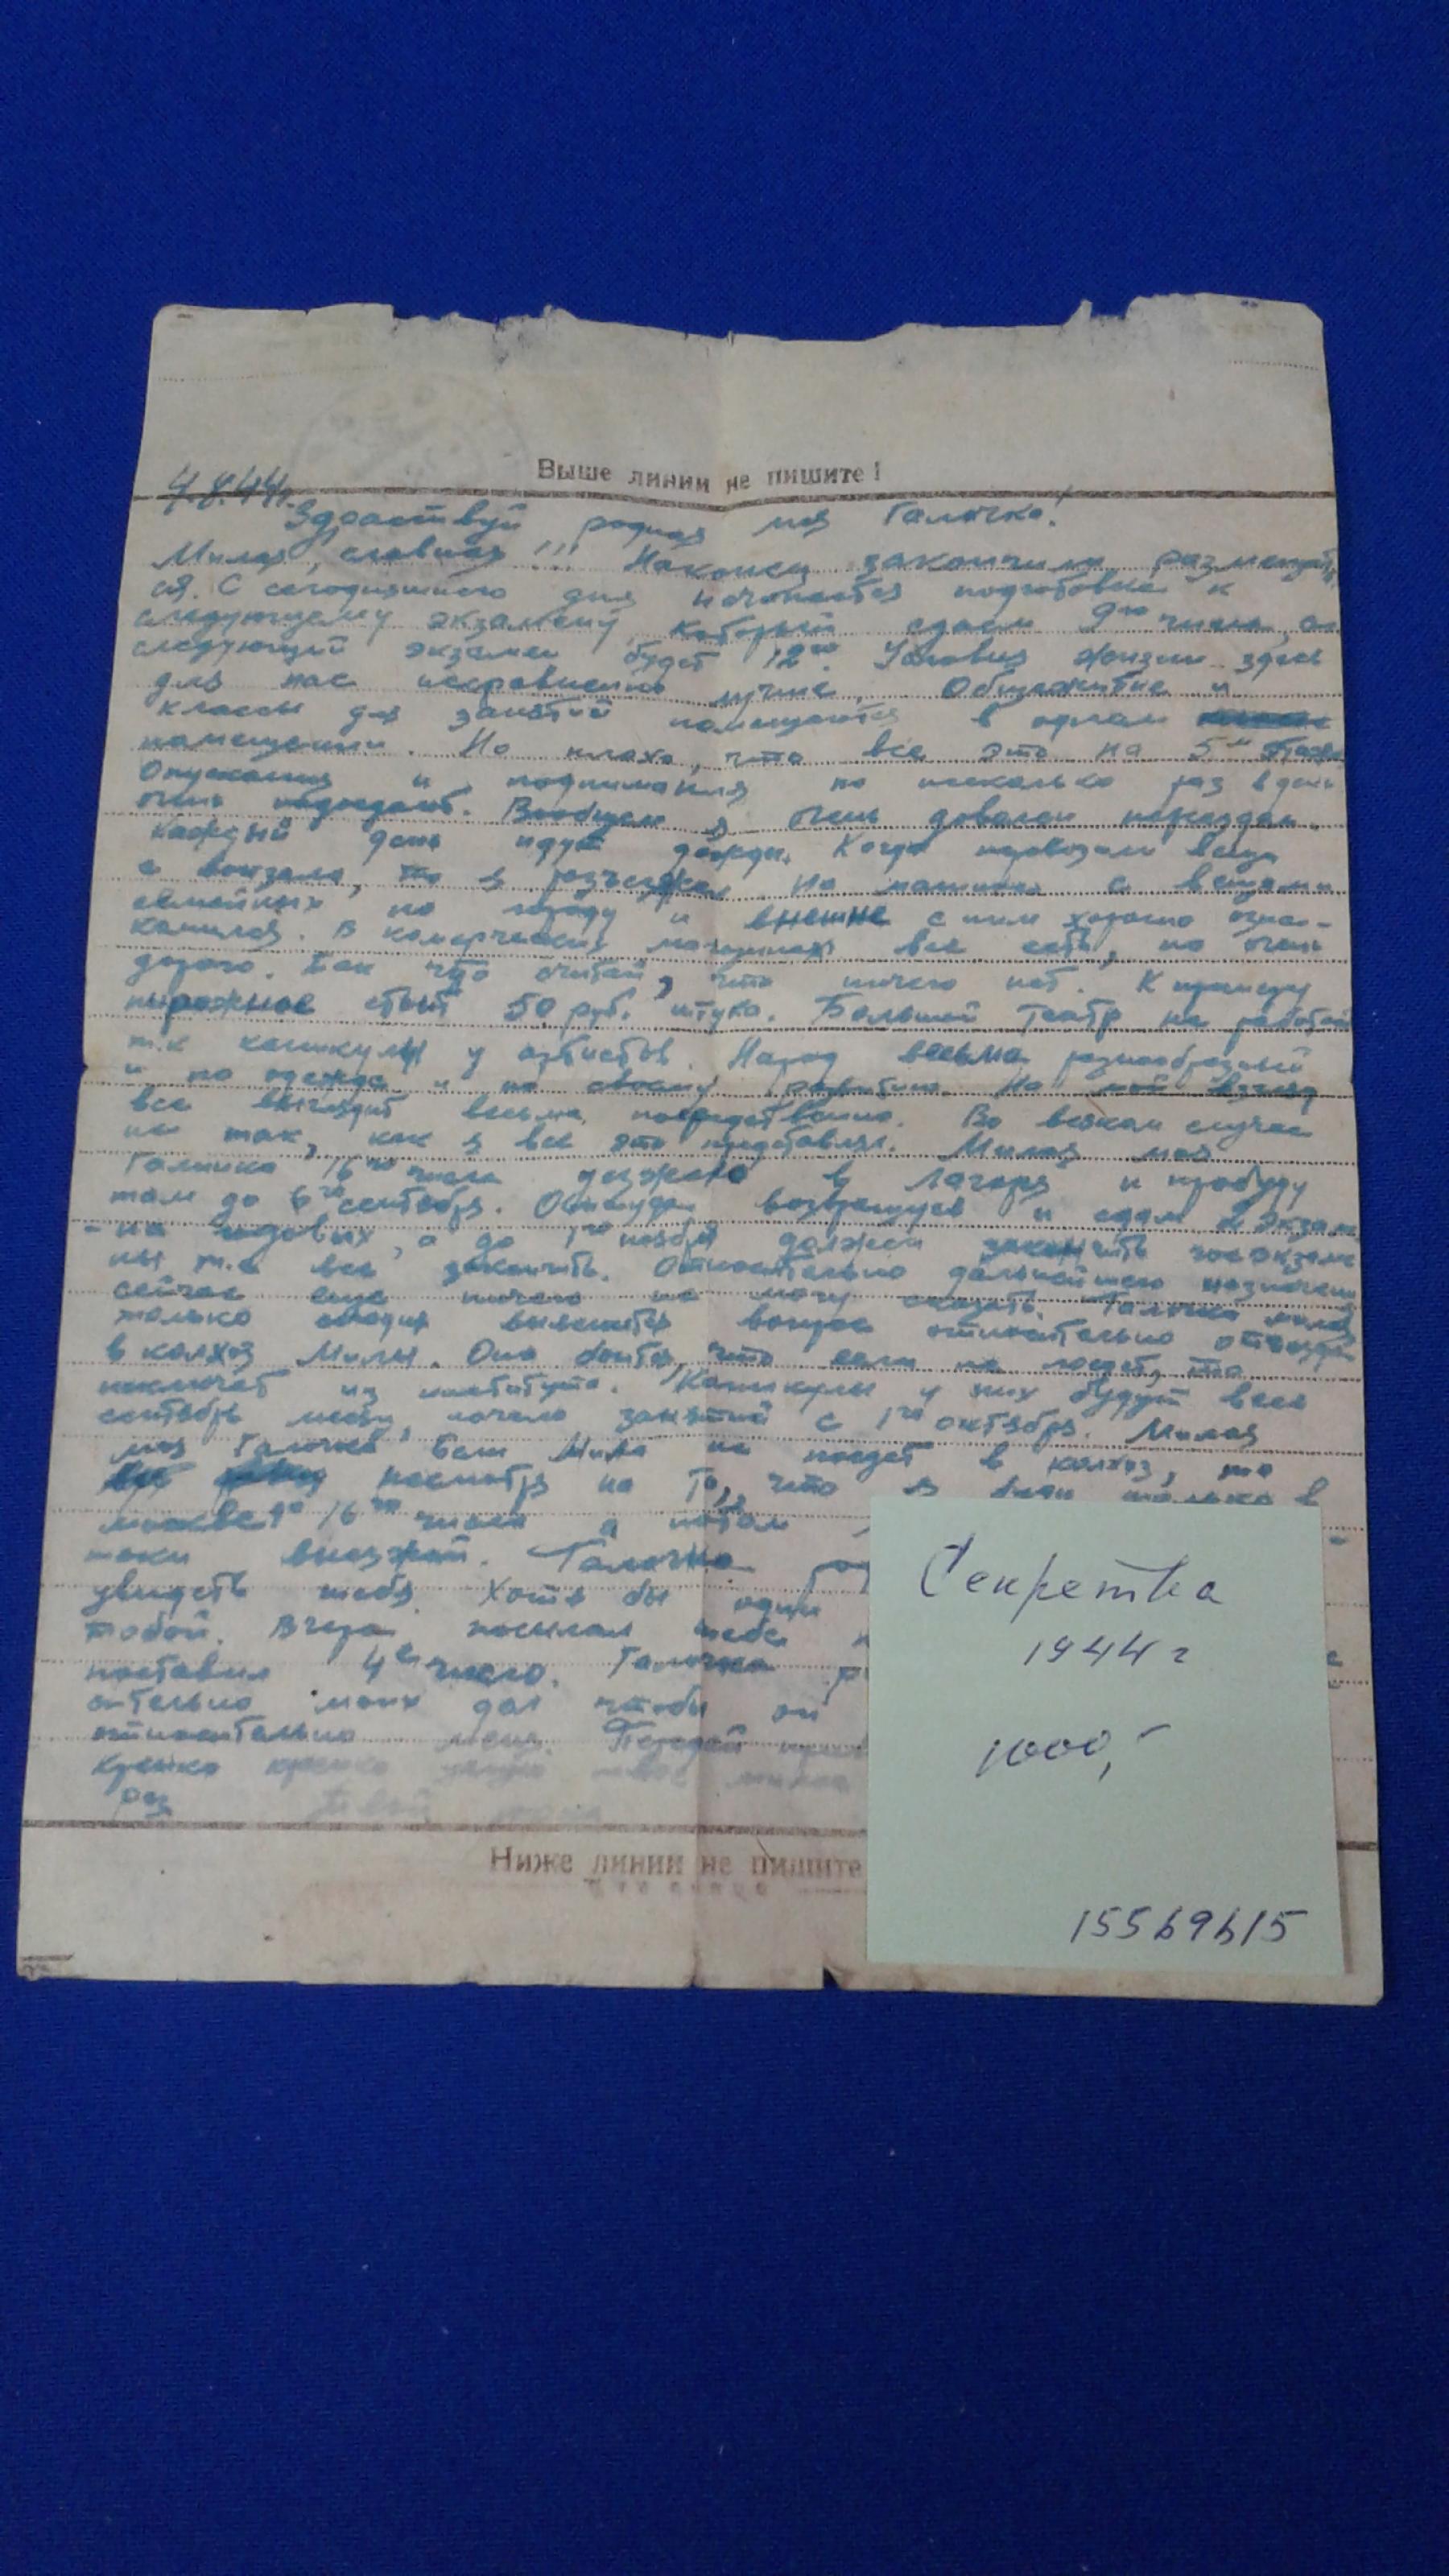 Выше линии не пишите!
Здраствуй родная моя Галочка!
Милая, славная!!! Наконец закончили размещать
ся. С сегодняшнего дня начинается подготовка к
следующему экзамену, который сдаем 9го числа, а
следующий экзамен будет 12го. Условия жизни здесь
для нас несравненно лучше. Общежитие и
классы для занятий помещаются в одном
помещении. Но плохо, что все это на 5м этаже
Опускания и поднимания по несколько раз в день
очень надоедает. Вообщем я очень доволен переездом.
Каждый день идут дожди. Когда перевозили вещи
с вокзала, то я разъезжал на машине с вещами
семейных по городу и внешне с ним хорошо озна-
комился. В комерческих магазинах все есть, но очень
дорого. Так что считай, что ничего нет. К примеру
пирожное стоит 50 руб. штука. Большой театр не работает
т.к каникулы у артистов. Народ весьма разнообразный
и по одежде и по своему развитию. На мой взгляд
все выглядит весьма посредственно. Во всяком случае
не так, как я все это представлял. Милая моя
Галинка, 16го числа уезжаю в лагеря и пробуду
там до 6го сентября. Оттуда возвращусь и сдам 2 экзаме
-на годовых, а до 1го ноября должен закончить гос экзаме
ны т.е все закончить. Относительно дальнейшего назначения
сейчас еще ничего не могу сказать. Галочка милая
только сегодня выяснится вопрос относительно отъезда
в колхоз Милы. Она боится, что если не поедет, то
исключат из института. Каникулы у них будут весь
сентябрь месяц, начало занятий с 1го октября. Милая
моя Галочка если Мила не поедет в колхоз, то
несмотря на то, что я буду только в
москве до 16го числа а потом
таки выезжай. Галочка
увидеть тебя. Хотя бы один
тобой. Вчера посылал тебе
поставил 4е число. Галочка
сительно моих дал чтобы он
относительно меня. Передай
Крепко крепко целую
раз Твой
Ниже линии не пишите
Секретка
1944 г
1000,-
155b9b15